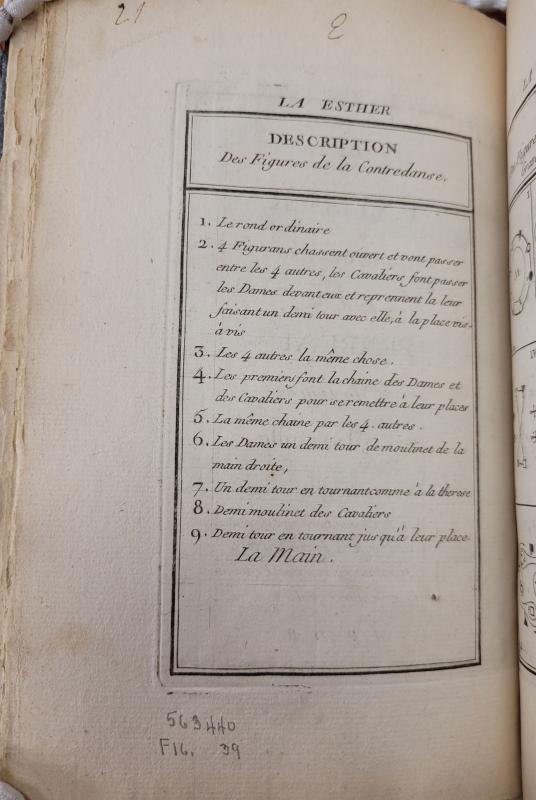 21
2
LA ESTHER
DESCRIPTION
Des Figures de la Contredanse.
1. Le rond ordinaire
2. 4 Figurans chassent ouvert et vont passer
entre les 4 autres, les Cavaliers font passer
les Dames devant eux et reprennent la leur
faisant un demi tour avec elle, à la place vis-
à vis
3. Les 4 autres la même chose.
4. Les premiers font la chaine des Dames et
des Cavaliers pour se remettre à leur places
5. La même chaine par les 4. autres.
6. Les Dames un demi tour de moulinet de la
main droite,
7. Un demi tour en tournant comme à la therese
8. Demi moulinet des Cavaliers
9. Demi tour en tournant jusqu'à leur place
La Main.
563440
F16. 39